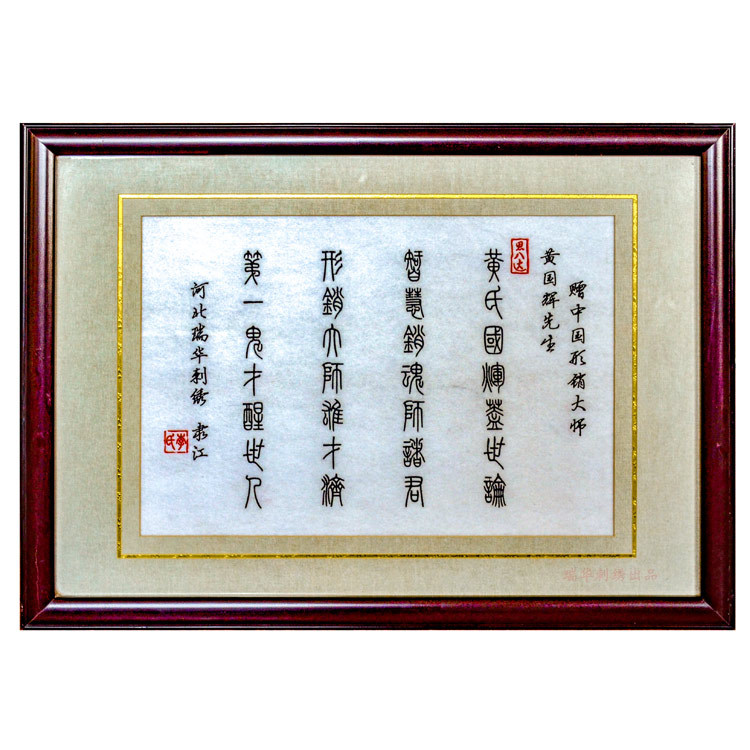 赠中国形销大师
黄国辉先生
黄氏國輝蓋世論
智慧銷魂師諸君
形銷大師雄才濟
第一鬼才醒世人
河北瑞华刺绣 隶江
瑞华刺绣出品